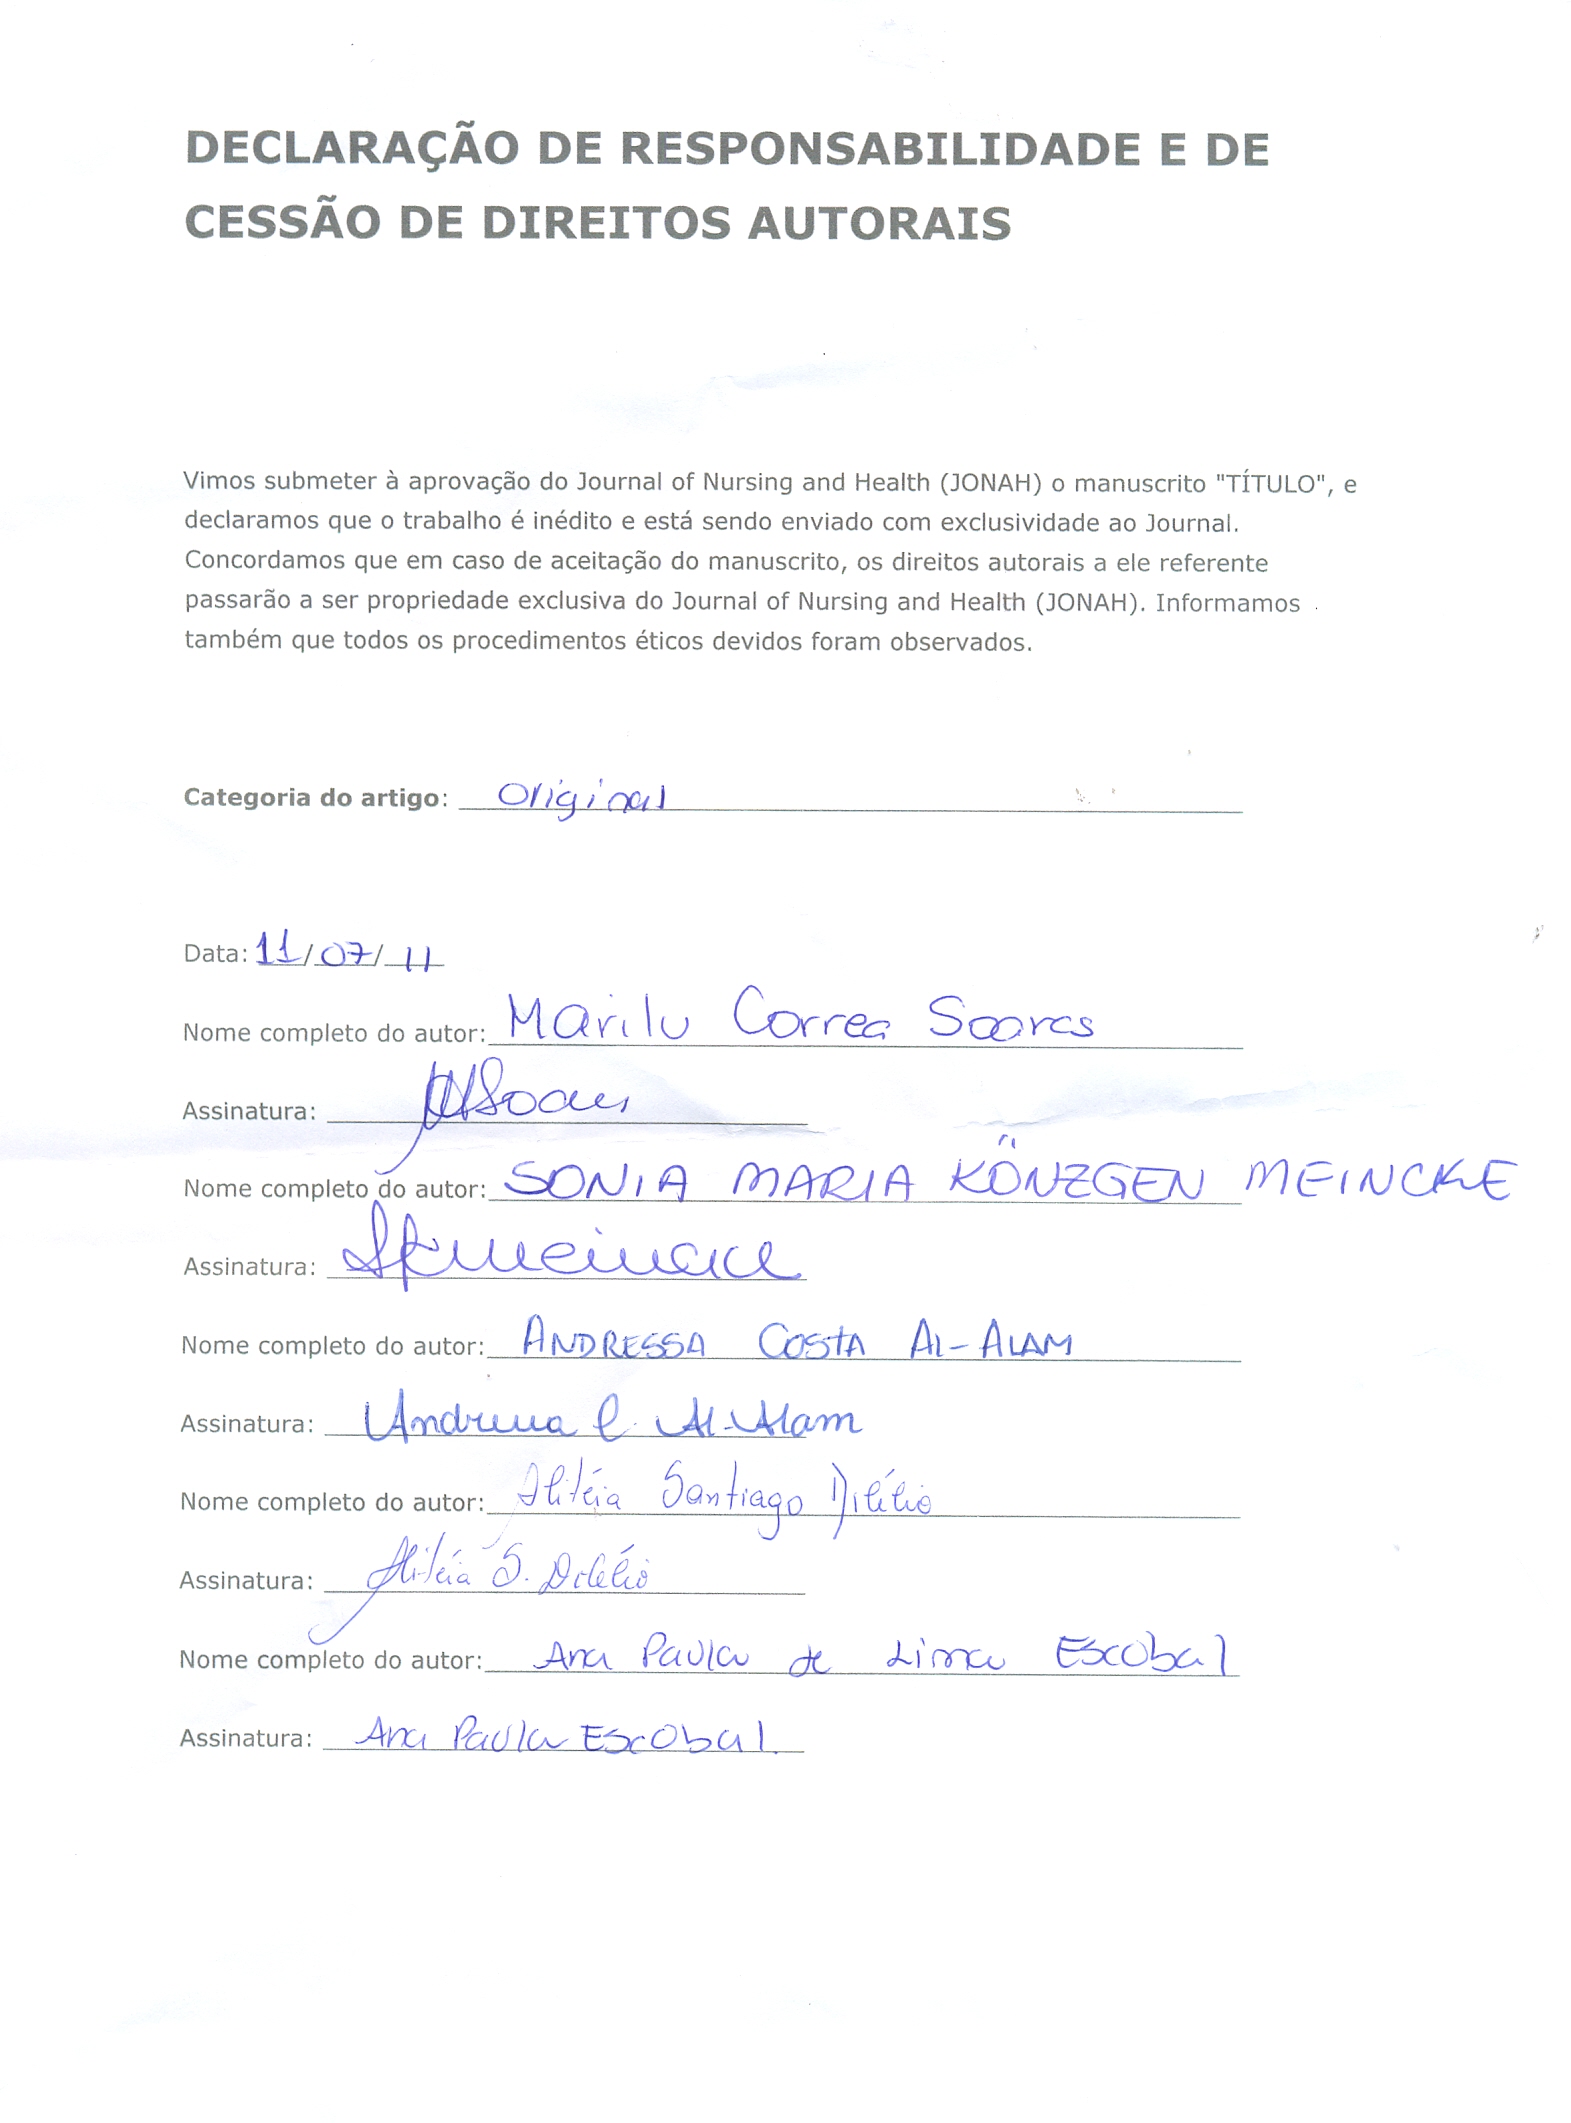 DECLARAÇÃO DE RESPONSABILIDADE E DE
CESSÃO DE DIREITOS AUTORAIS
Vimos submeter à aprovação do Journal of Nursing and Health (JONAH) o manuscrito "TÍTULO", e
declaramos que o trabalho é inédito e está sendo enviado com exclusividade ao Journal.
Concordamos que em caso de aceitação do manuscrito, os direitos autorais a ele referente
passarão a ser propriedade exclusiva do Journal of Nursing and Health (JONAH). Informamos
também que todos os procedimentos éticos devidos foram observados.
Categoria do artigo: Original
Data: 11/07/11
Nome completo do autor: Marilu Correa Soares
Assinatura: Soares
Nome completo do autor: SONIA MARIA KÖNZGEN MEINCKE
Assinatura: SKMeincke
Nome completo do autor: ANDRESSA COSTA AL-ALAM
Assinatura: Andressa C. Al-Alam
Nome completo do autor: Alitéia Santiago Dilélio
Assinatura: Alitéia S. Dilélio
Nome completo do autor: Ana Paula de Lima Escobal
Assinatura: Ana Paula Escobal